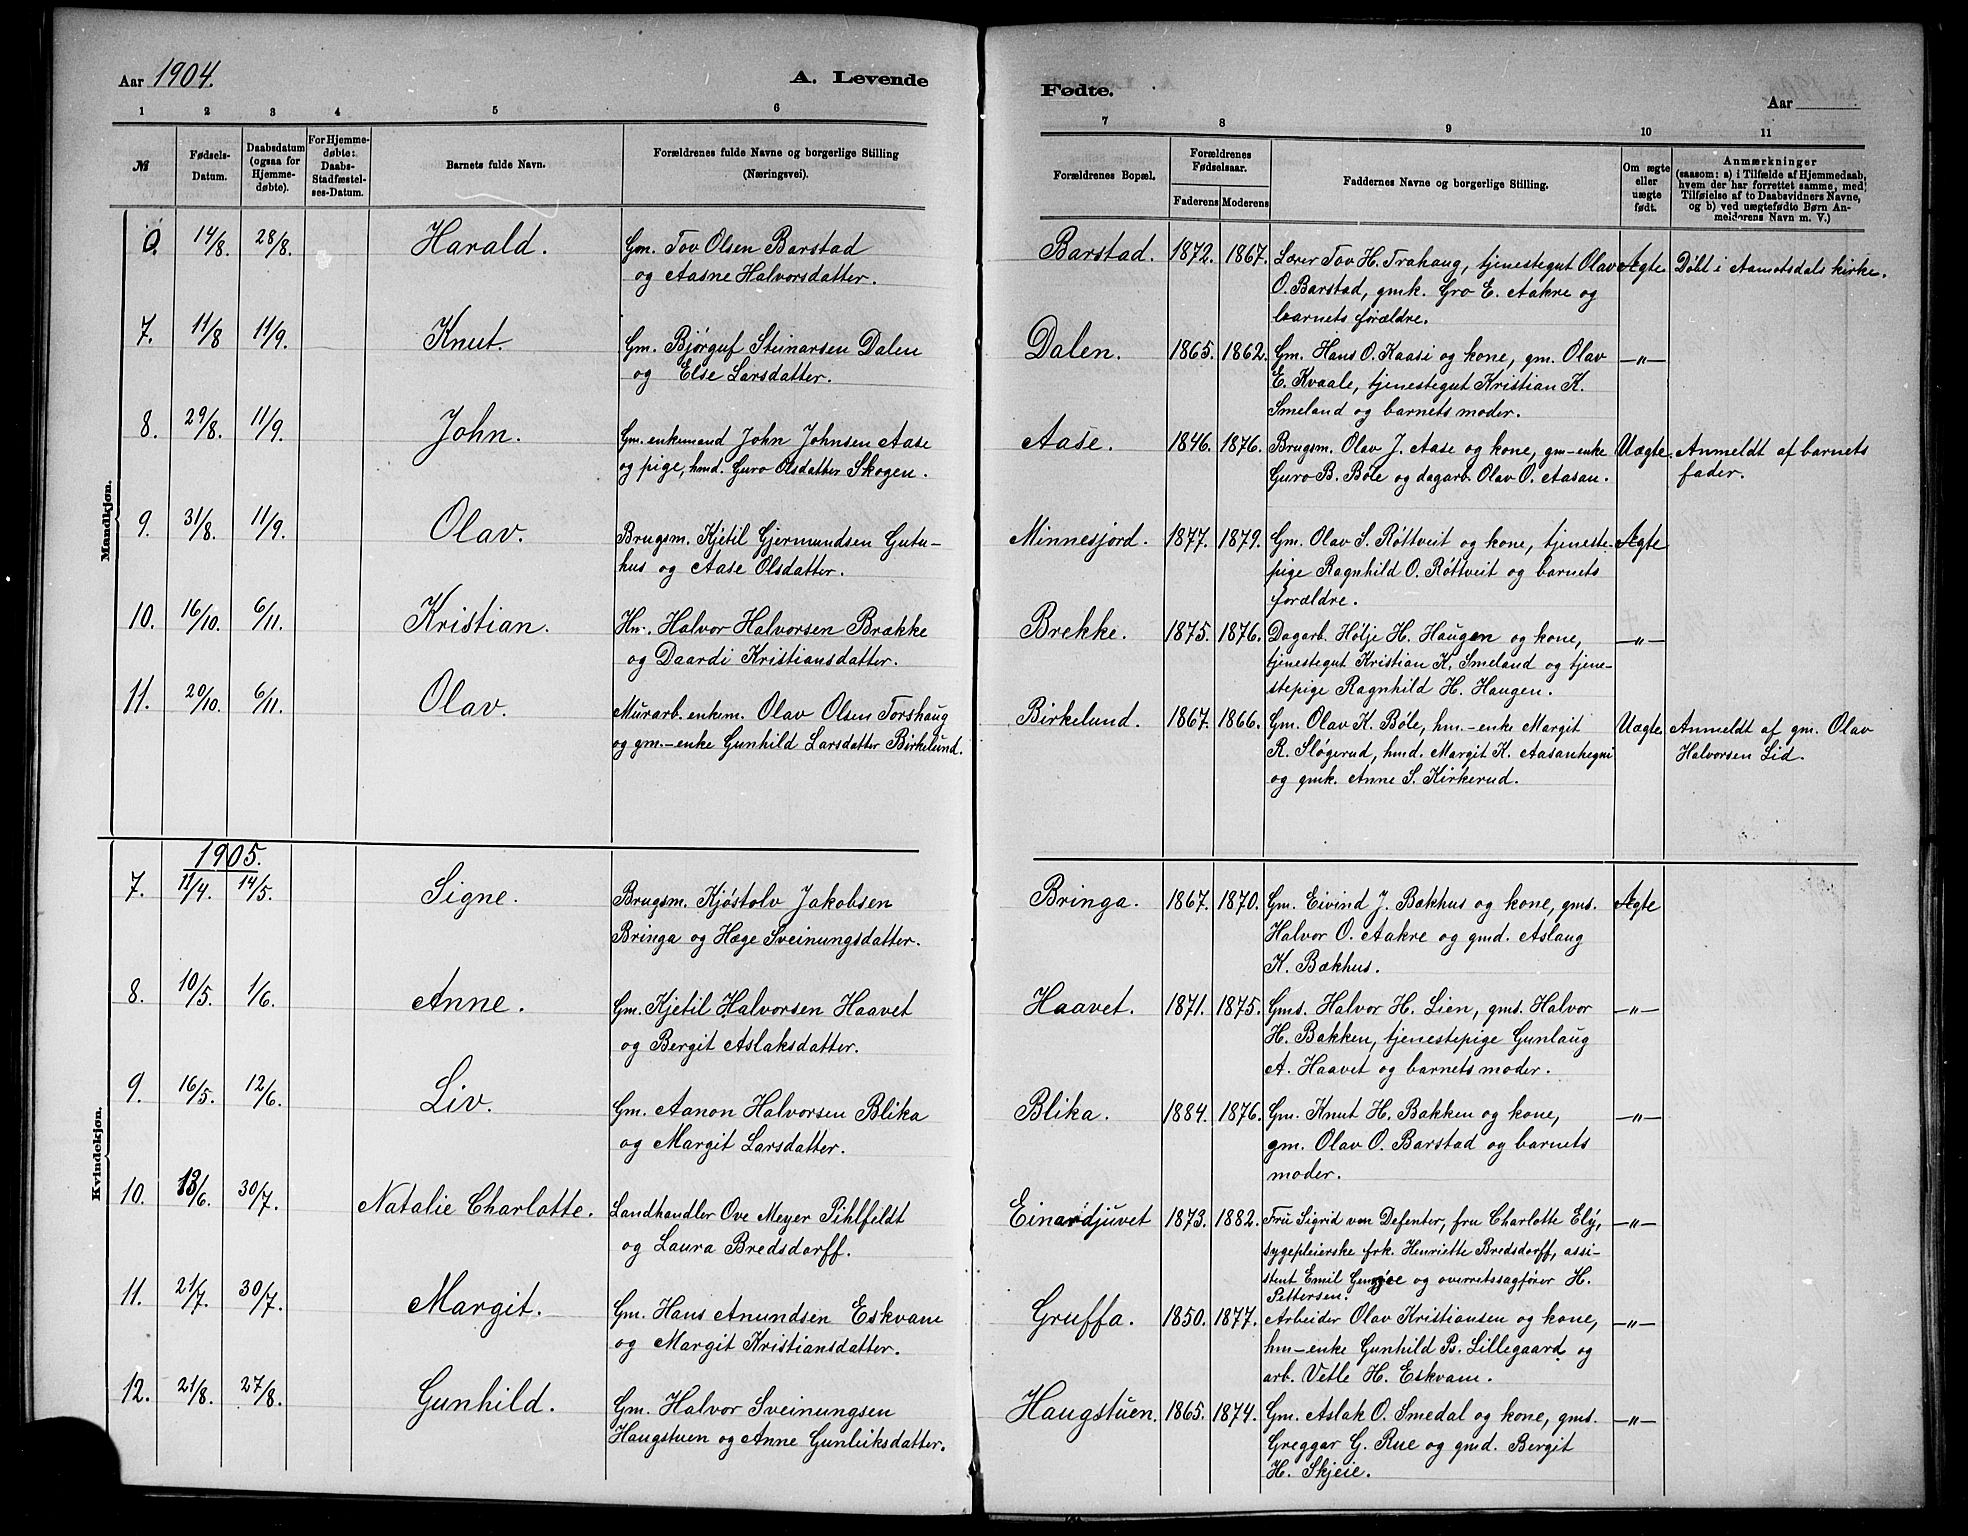 Aar 1904.
A. Levende
Fødte.
Aar
1 2 3 4 5 6
7 8 9 10 11
№
Fødsels-
Datum.
Daabsdatum
(ogsaa for
Hjemme-
døbte).
For Hjemme-
døbte:
Daabs-
Stadfæstel-
ses-Datum.
Barnets fulde Navn.
Forældrenes fulde Navne og borgerlige Stilling
(Næringsvei).
Forældrenes Bopæl.
Forældrenes
Fødselsaar.
Faderens Moderens
Faddernes Navne og borgerlige Stilling.
Om ægte
eller
uægte
født.
Anmærkninger
(saasom: a) i Tilfælde af Hjemmedaab,
hvem der har forrettet samme, med
Tilføielse af to Daabsvidners Navne,
og b) ved uægtefødte Børn An-
melderens Navn m. V.)
Mandkjøn.
6. 14/8. 28/8. Harald. Gm. Tov Olsen Barstad
og Aasne Halvorsdatter.
Barstad. 1872. 1867. Lærer Tov H. Trahaug, tjenestegut Olav
O. Barstad, gmk. Gro E. Aakre og
barnets forældre.
Ægte Døbt i Aamotsdals kirke.
7. 11/8 11/9. Knut. Gm. Bjørguf Steinarsen Dalen
og Else Larsdatter.
Dalen. 1865. 1862. Gm. Hans O. Kaasi og kone, gm. Olav
E. Kvaale, tjenestegut Kristian K.
Smeland og barnets moder.
—"—
8. 29/8. 11/9. John. Gm. enkemand John Johnsen Aase
og pige, hmd. Guro Olsdatter Skogen.
Aase. 1846. 1876. Brugsm. Olav J. Aase og kone, gm-enke
Guro B. Bøle og dagarb. Olav O. Aasan.
Uægte. Anmeldt af barnets
fader.
9. 31/8. 11/9. Olav. Brugsm. Kjetil Gjermundsen Gutu-
hus og Aase Olsdatter.
Minnesjord. 1877. 1879. Gm. Olav S. Røttveit og kone, tjeneste-
pige Ragnhild O. Røttveit og barnets
forældre.
Ægte
10. 16/10. 6/11. Kristian. Hn. Halvor Halvorsen Brække
og Daardi Kristiansdatter.
Brekke. 1875. 1876. Dagarb. Hølje H. Haugen og kone,
tjenestegut Kristian K. Smeland og tjene-
stepige Ragnhild H. Haugen.
—"—
11. 20/10. 6/11. Olav. Murarb. enkem. Olav Olsen Torshaug
og gm.-enke Gunhild Larsdatter Birkelund.
Birkelund. 1867. 1866. Gm. Olav K. Bøle, hm.-enke Margit
R. Sløgerud, hmd. Margit K. Aasanhegni
og gmk. Anne S. Kirkerud.
Uægte. Anmeldt af gm. Olav
Halvorsen Lid.
Kvindekjøn.
1905.
7. 11/4. 14/5. Signe. Brugsm. Kjøstolv Jakobsen
Bringa og Hæge Sveinungsdatter.
Bringa. 1867. 1870. Gm. Eivind J. Bakhus og kone, gms.
Halvor O. Aakre og gmd. Aslaug
K. Bækhus.
Ægte
8. 10/5. 1/6. Anne. Gm. Kjetil Halvorsen Haavet
og Bergit Aslaksdatter.
Haavet. 1871. 1875. Gms. Halvor H. Lien, gms. Halvor
H. Bakken, tjenestepige Gunlaug
A. Haavet og barnets moder.
—"—
9. 16/5. 12/6. Liv. Gm. Aanon Halvorsen Blika
og Margit Larsdatter.
Blika. 1884. 1876. Gm. Knut H. Bakken og kone,
gm. Olav O. Barstad og barnets
moder.
—"—
10. 13/6. 30/7. Natalie Charlotte. Landhandler Ove Meyer Pihlfeldt
og Laura Bredsdorff.
Einardjuvet 1873. 1882. Fru Sigrid von Defenter, fru Charlotte Ely,
sygepleierske frk. Henriette Bredsdorff, assi-
stent Emil og overretssagfører H.
Pettersen.
—"—
11. 21/7. 30/7. Margit. Gm. Hans Anundsen Eskvam
og Margit Kristiansdatter.
Gruffa. 1850. 1877. Arbeider Olav Kristiansen og kone,
hm-enke Gunhild B. Lillegaard og
arb. Vetle H. Eskvam.
—"—
12. 21/8. 27/8. Gunhild. Gm. Halvor Sveinungsen
Haugstuen og Anne Gunleiksdatter.
Haugstuen. 1865. 1874. Gm. Aslak O. Smedal og kone, gms.
Greggar G. Rue og gmd. Bergit
H. Skjeie.
—"—